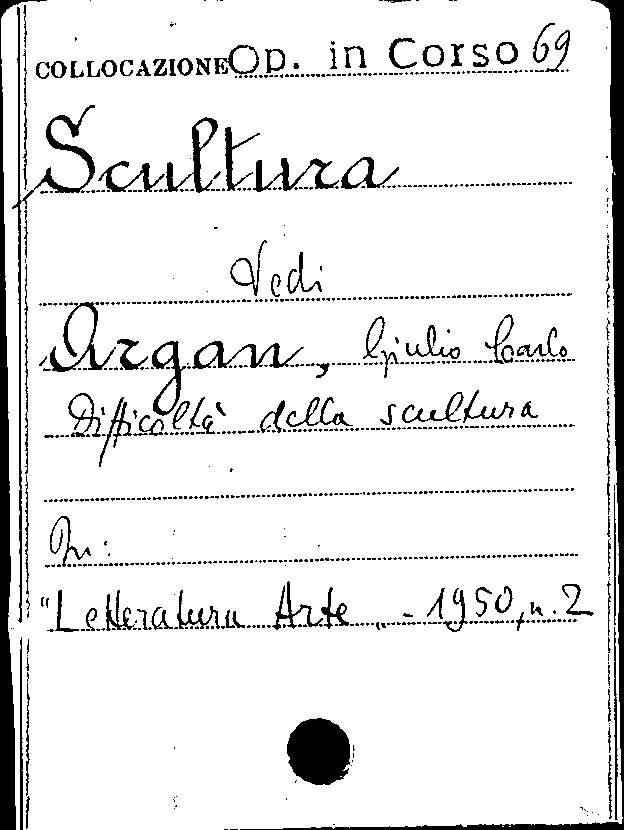 COLLOCAZIONE Op. in Corso 69
Scultura
Vedi
Argan, Giulio Carlo
Difficoltà della scultura
In:
"Letteratura Arte„ - 1950, n. 2